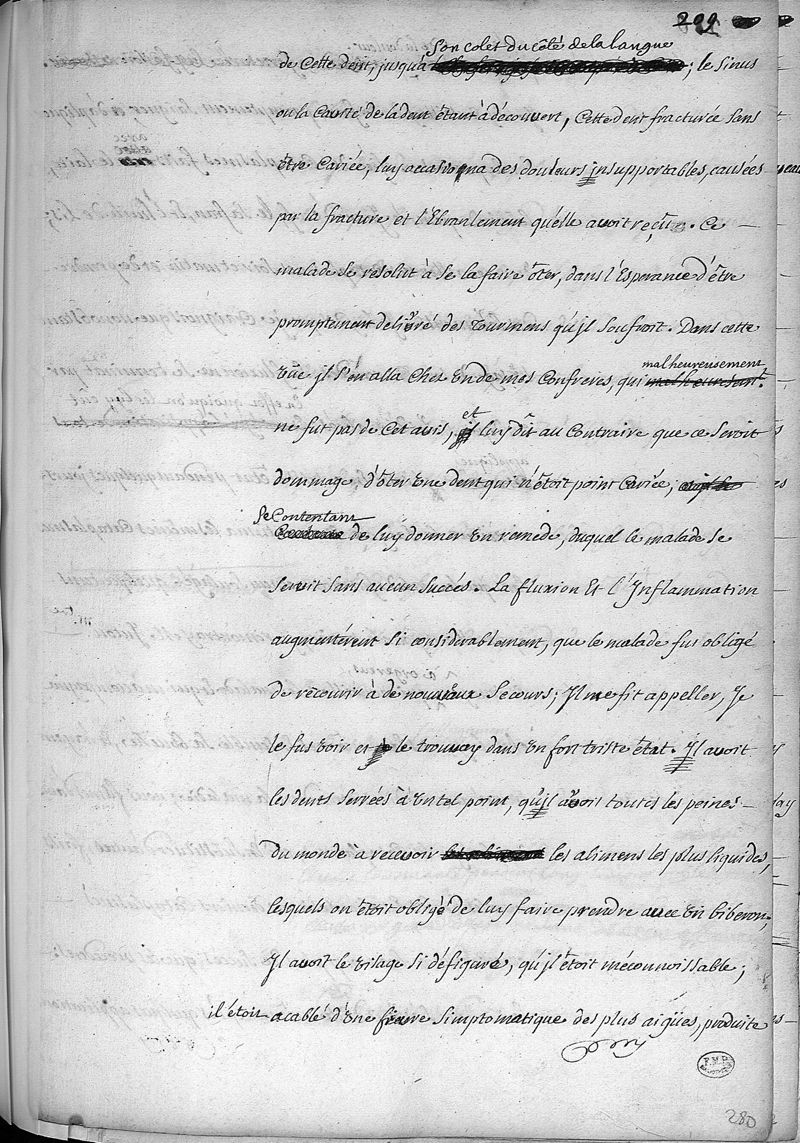 299
son colet du côté de la langue
de Cette dent, jusqu'à ; le sinus
ou la Cavité de la dent étant à découvert, Cette dent fracturée sans
être Cariée, luy occasionna des douleurs insupportables, causées
par la fracture et l'Ebranlement qu'elle avoit reçû. Ce
malade se resolut à se la faire ôter, dans l'Esperance d'être
promptement delivré des Tourmens qu'jl soufroit. Dans cette
vüe jl s'en alla Chez un de mes Confreres, qui malheureusement
ne fut pas de Cet avis, et luy dit au Contraire que ce seroit
dommage, d'ôter une dent qui n'étoit point Cariée;
se Contentant
de luy donner un remede, duquel le malade se
servit sans aucun succés. La fluxion Et l'Inflammation
augmentérent si considerablement, que le malade fus obligé
de recourir à de nouveaux secours; Jl me fit appeller, Je
le fus voir et le trouvay dans un fort triste état. Jl avoit
les dents serrées à un tel point, qu'jl avoit toutes les peines
du monde a recevoir les alimens les plus liquides,
lesquels on étoit obligé de luy faire prendre avec un biberon;
Jl avoit le visage si défiguré, qu'jl étoit méconnoissable;
il étoit acablé d'une fievre simptomatique des plus aigües, produite
280